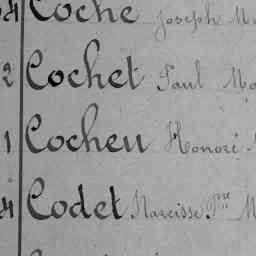 Coche Joseph M
2 Cochet Paul Ma
1 Cocheu Honoré
4 Codet Narcisse Pre M